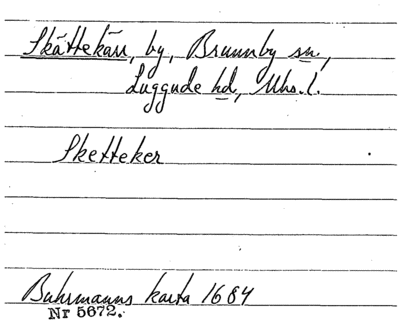 Skättekärr, by, Brunnby sn,
Luggude hd, Mhs. l.
Sketteker
Buhrmanns karta 1684
Nr 5672.